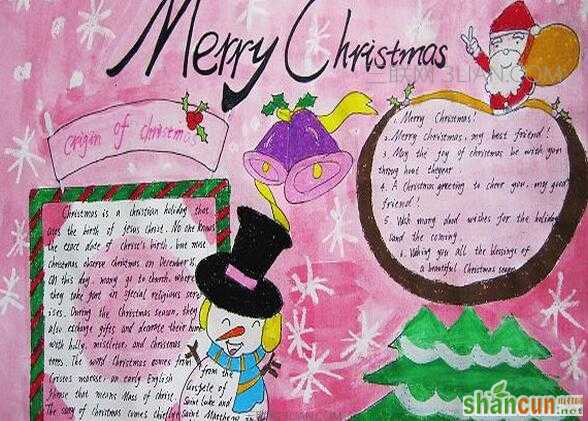 Merry Christmas
三联网 3LIAN.COM
Origin of Christmas
Christmas is a christian holiday that
the birth of Jesus christ. No one knows
the exact date of christ's birth, but most
christmas observe christmas on December 25.
On this day, many go to church, where
they take part in special religious serv
ices. During the Christmas season, they
also exchange gifts and decorate their home
with holly, mistletoe, and christmas
trees. The word Christmas comes from
Cristes maesse, an early English
Phrase that means Mass of christ.
The story of Christmas comes chiefly
from the
Gospels of
Saint Luke and
Saint Matthew in the
1. Merry Christmas!
2. Merry christmas, my best friend!
3. May the joy of christmas be with you
throug hout the year.
4. A Christmas greeting to cheer you, my good
friend!
5. With many good wishes for the holiday
and the coming
6. Wishing you all the blessings of
a beautiful Christmas season
shancun
.net